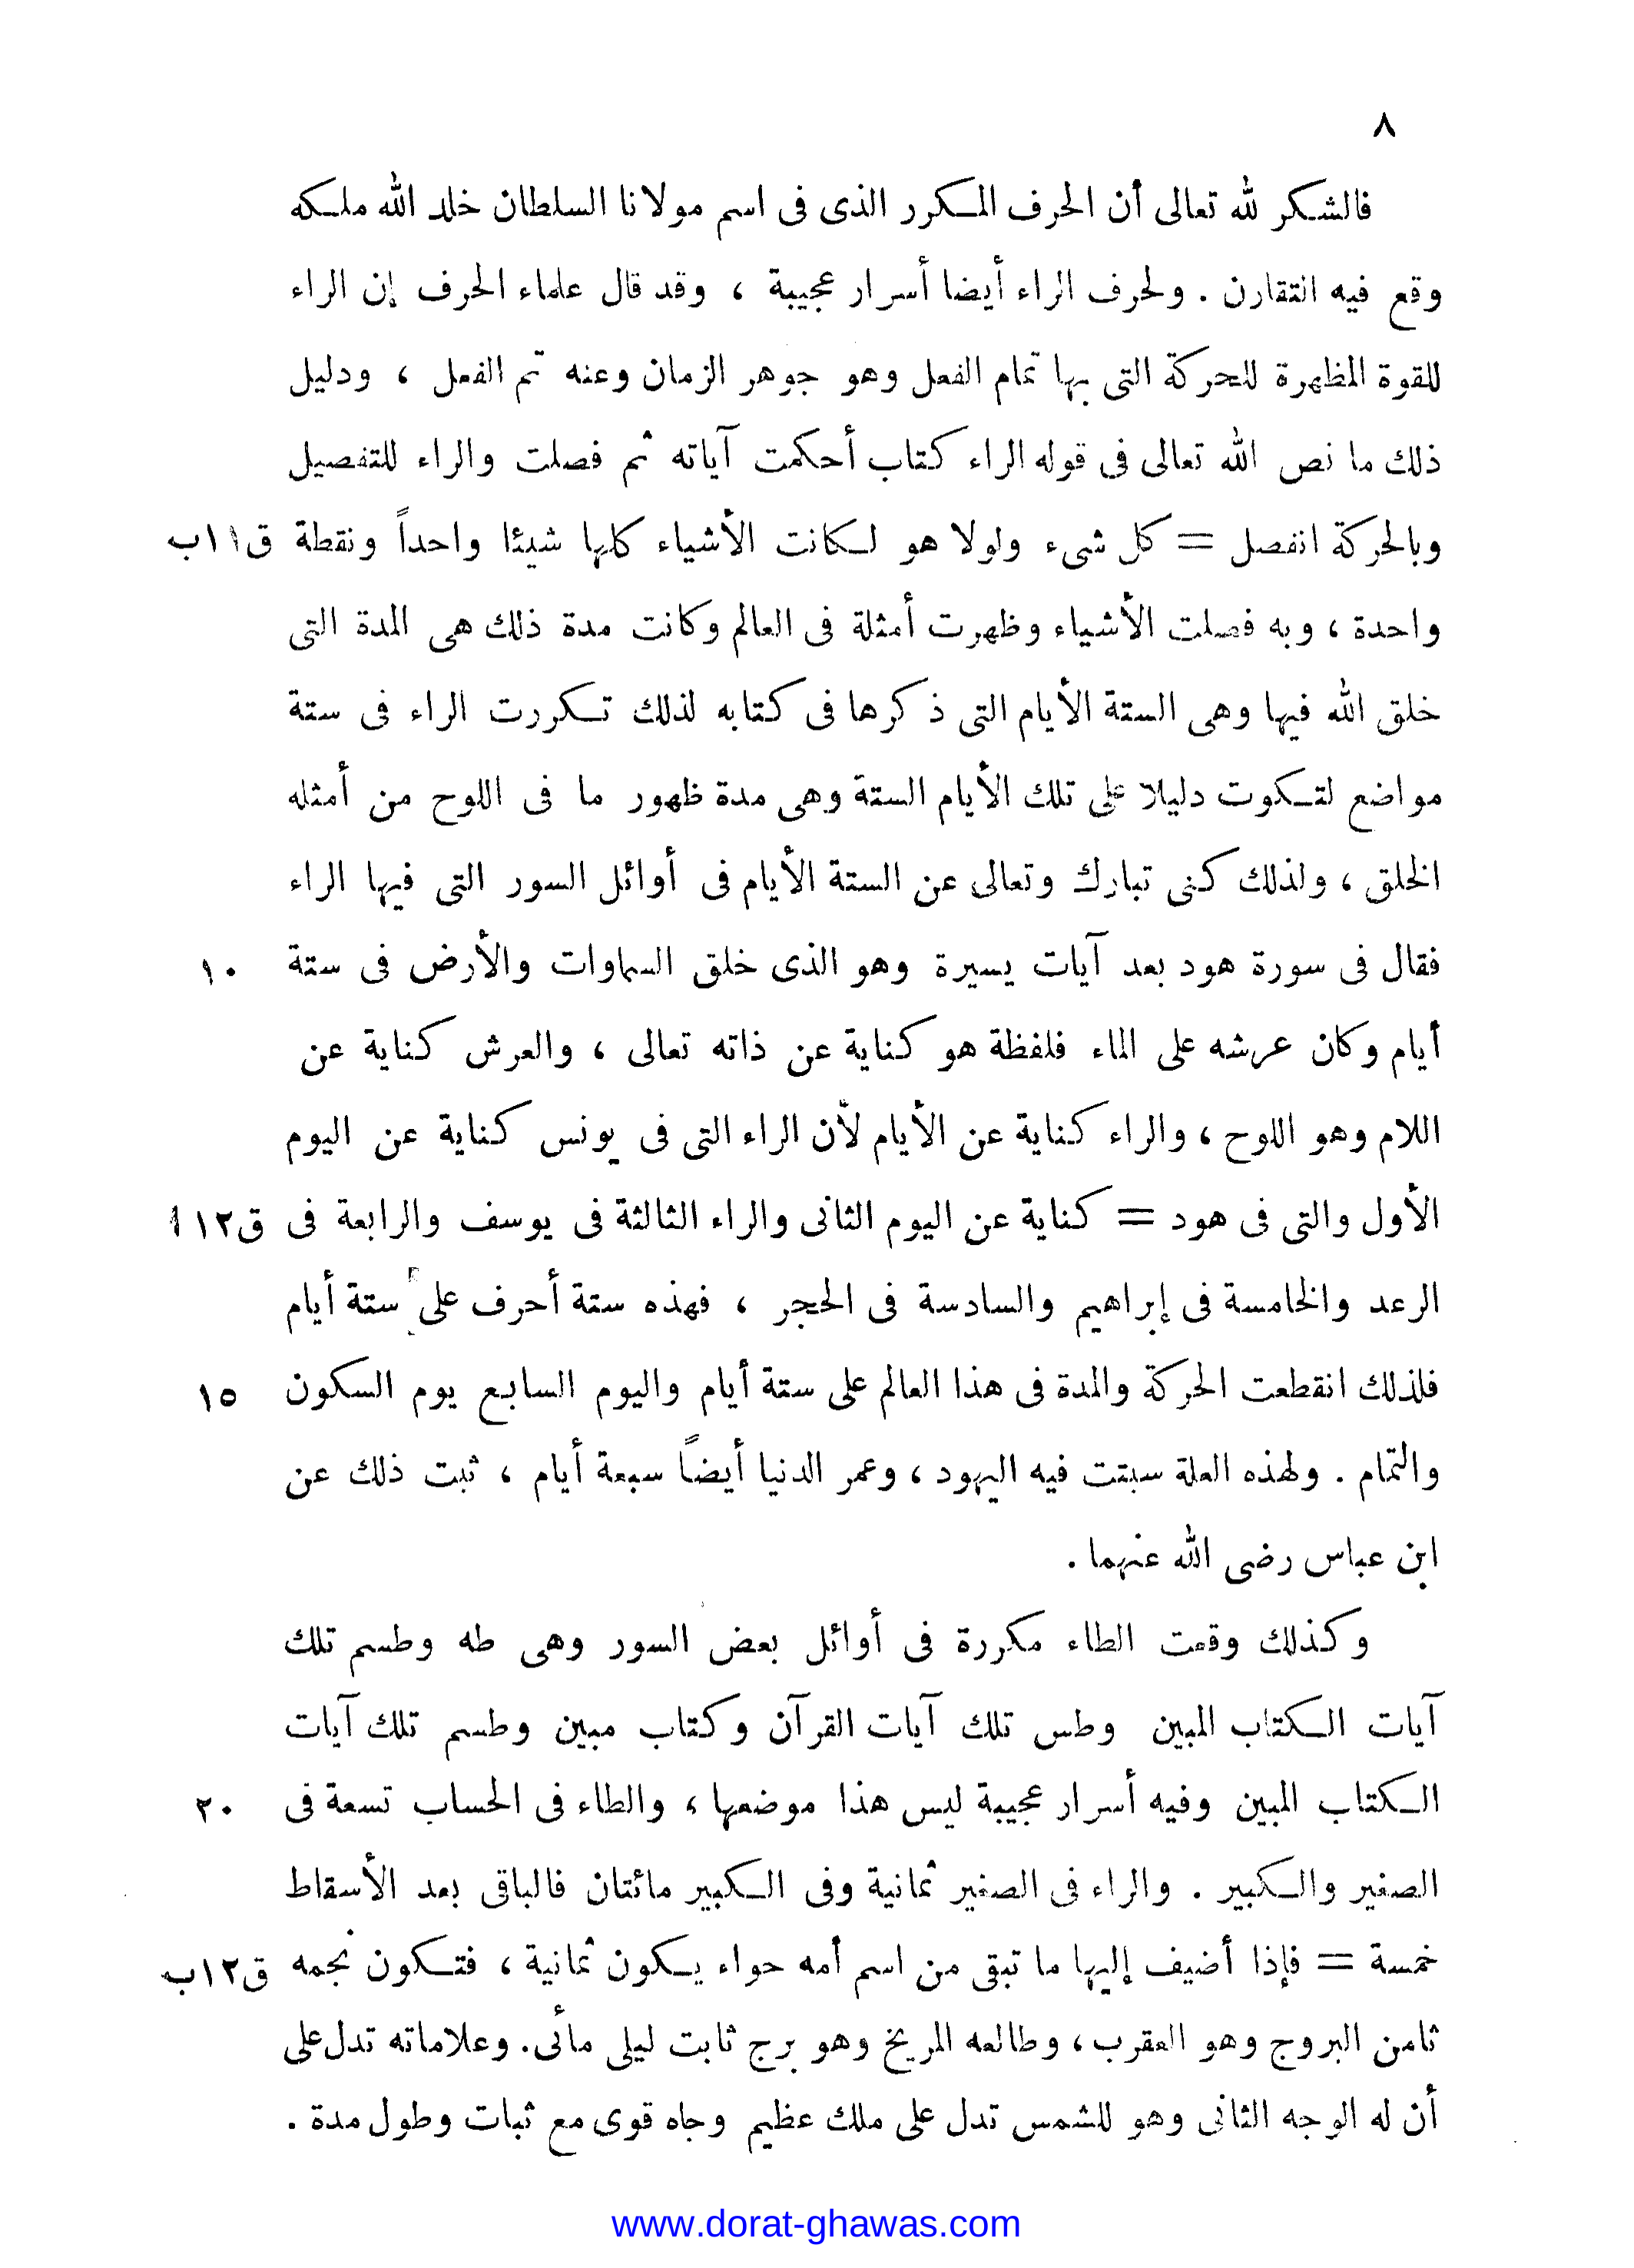 ٨
فالشكر لله تعالى أن الحرف المكرر الذى فى اسم مولانا السلطان خلد الله ملكه
وقع فيه انتقارن . ولحرف الراء أيضا أسرار عجيبة ، وقد قال علماء الحرف إن الراء
للقوة المظهرة للحركة التى بها تمام الفعل وهو جوهر الزمان وعنه تم الفعل ، ودليل
ذلك ما نص الله تعالى فى قوله الراء كتاب أحكمت آياته ثم فصلت والراء للتفصيل
وبالحركة انفصل = كل شىء ولولا هو لكانت الأشياء كلها شيئا واحداً ونقطة ق١١ب
واحدة ، وبه فصلت الأشياء وظهرت أمثلة فى العالم وكانت مدة ذلك هى المدة التى
خلق الله فيها وهى الستة الأيام التى ذكرها فى كتابه لذلك تكررت الراء فى ستة
مواضع لتكوت دليلا على تلك الأيام الستة وهى مدة ظهور ما فى اللوح من أمثله
الخلق ، ولذلك كنى تبارك وتعالى عن الستة الأيام فى أوائل السور التى فيها الراء
فقال فى سورة هود بعد آيات يسيرة وهو الذى خلق السماوات والأرض فى ستة ١٠
أيام وكان عرشه على الماء فلفظة هو كناية عن ذاته تعالى ، والعرش كناية عن
اللام وهو اللوح ، والراء كناية عن الأيام لأن الراء التى فى يونس كناية عن اليوم
الأول والتى فى هود = كناية عن اليوم الثانى والراء الثالثة فى يوسف والرابعة فى ق١٢ا
الرعد والخامسة فى إبراهيم والسادسة فى الحجر ، فهذه ستة أحرف على ستة أيام
فلذلك انقطعت الحركة والمدة فى هذا العالم على ستة أيام واليوم السابع يوم السكون ١٥
والتمام . ولهذه العلة سبتت فيه اليهود ، وعمر الدنيا أيضاً سبعة أيام ، ثبت ذلك عن
ابن عباس رضى الله عنهما .
وكذلك وقعت الطاء مكررة فى أوائل بعض السور وهى طه وطسم تلك
آيات الكتاب المبين وطس تلك آيات القرآن وكتاب مبين وطسم تلك آيات
الكتاب المبين وفيه أسرار عجيبة ليس هذا موضعها ، والطاء فى الحساب تسعة فى ٢٠
الصغير والكبير . والراء فى الصغير ثمانية وفى الكبير مائتان فالباقى بعد الأسقاط
خمسة = فإذا أضيف إليها ما تبقى من اسم أمه حواء يكون ثمانية ، فتكون نجمه ق١٢ب
ثامن البروج وهو العقرب ، وطالعه المريخ وهو برج ثابت ليلى مائى. وعلاماته تدل على
أن له الوجه الثانى وهو للشمس تدل على ملك عظيم وجاه قوى مع ثبات وطول مدة .
www.dorat-ghawas.com